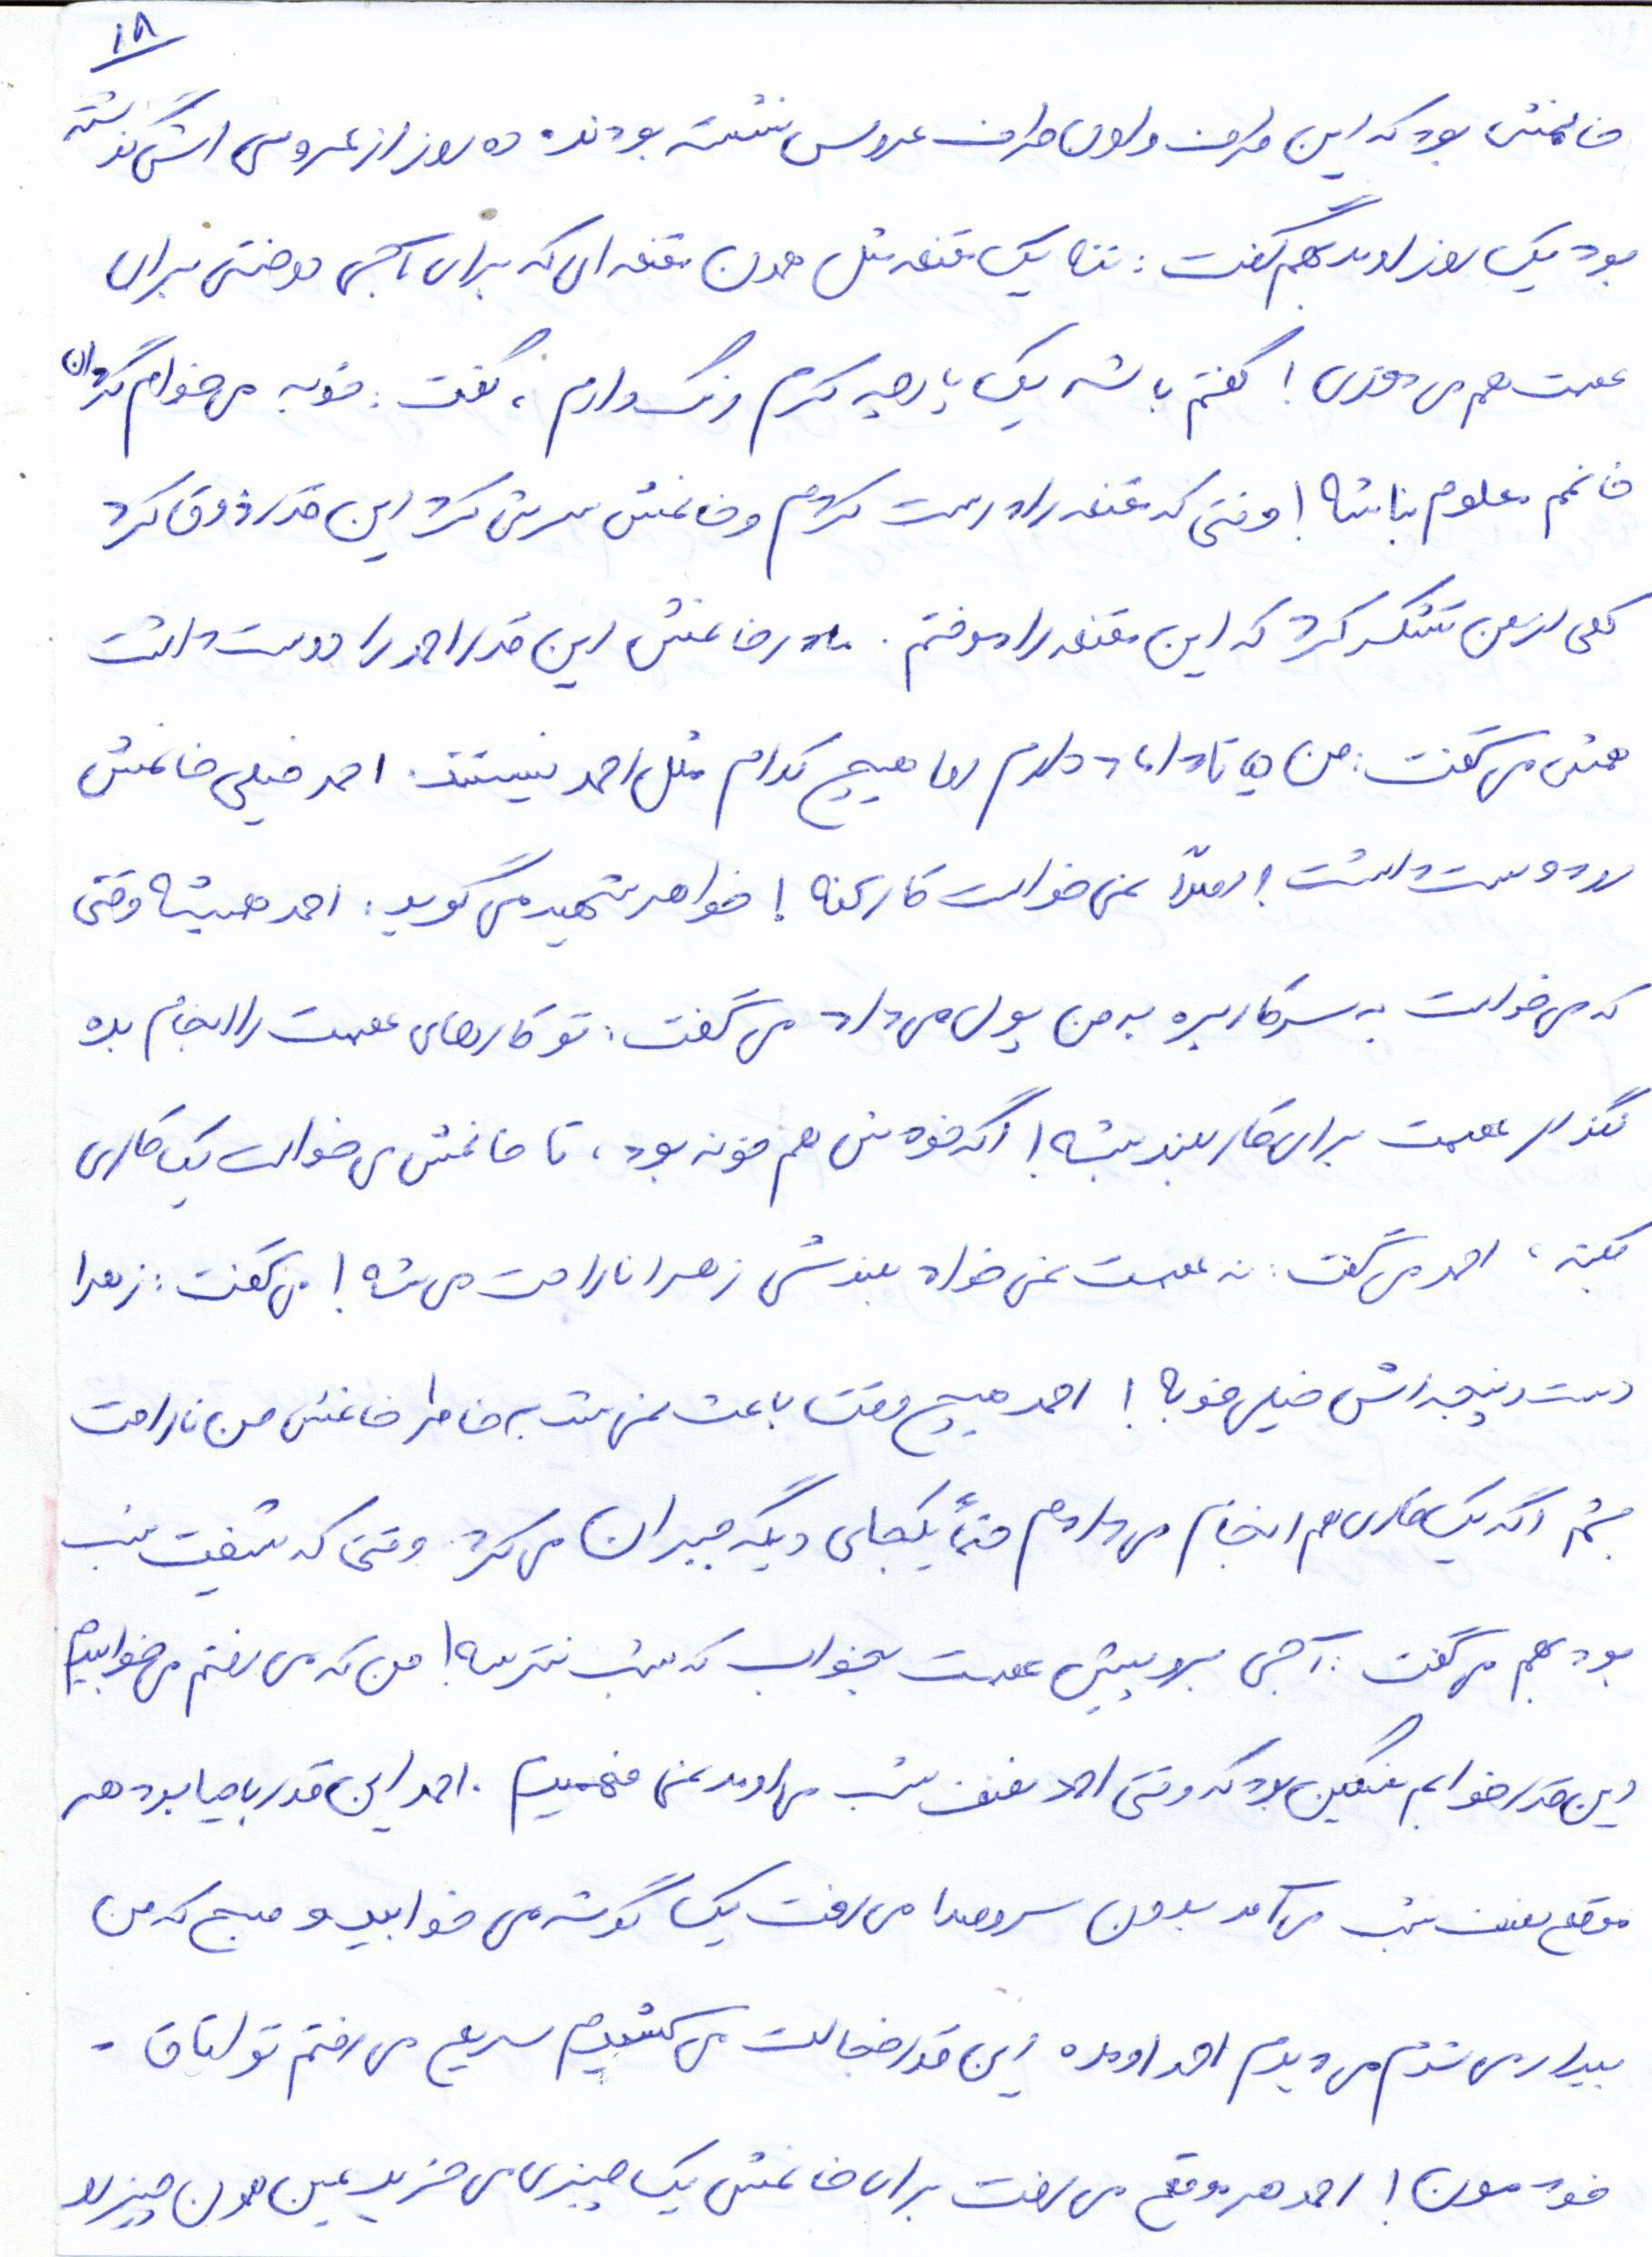 ۱۸
خانمش بود که این طرف و اون طرف عروس نشسته بودند ده روز از عروسی اش گذشته
بود یک روز اومد بهم گفت: ننه یک مقنعه مثل همون مقنعه ای که برای آجی دوختی برای
عصمت هم می دوزی! گفتم باشه یک پارچه کرم رنگ دارم، گفت: خوبه می خوام گردن
خانمم معلوم نباشه! وقتی که مقنعه را درست کردم و خانمش سرش کرد این قدر ذوق کرد
کلی از من تشکر کرد که این مقنعه را دوختم. مادر خانمش این قدر احمد را دوست داشت
همش می گفت: من تا داماد دارم اما هیچ کدام مثل احمد نیستند. احمد خیلی خانمش
رو دوست داشت! اصلاً نمی خواست کار بکنه! خواهر شهید می گوید: احمد همیشه وقتی
که می خواست به سر کار بره به من پول می داد می گفت: تو کارهای عصمت را انجام بده
نگذار عصمت برای کار بلند بشه! اگه خودش هم خونه بود، تا خانمش می خواست یک کاری
بکنه، احمد می گفت: نه عصمت نمی خواد بلند شی زهرا ناراحت می شه! می گفت: زهرا
دست و پنجه اش خیلی خوبه! احمد هیچ وقت باعث نمی شد به خاطر خانمش من ناراحت
بشم اگه یک کاری هم انجام می دادم حتماً یکجای دیگه جبران می کرد. وقتی که شیفت شب
بود بهم می گفت: آجی برو پیش عصمت بخواب که شب نترسه! من که می رفتم می خوابیدم
این قدر خوابم سنگین بود که وقتی احمد نصف شب می اومد نمی فهمیدم. احمد این قدر با حیا بود هر
موقع نصف شب می آمد بدون سر و صدا می رفت یک گوشه می خوابید و صبح که من
بیدار می شدم می دیدم احمد اومده این قدر خجالت می کشیدم سریع می رفتم تو اتاق -
خودمون! احمد هر موقع می رفت برای خانمش یک چیزی می خرید عین همون چیز رو